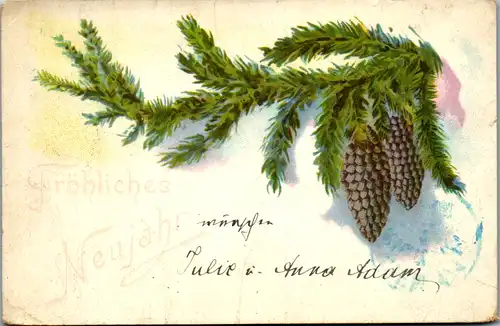 Fröhliches
Neujahr
wünschen
Julie u. Anna Adam